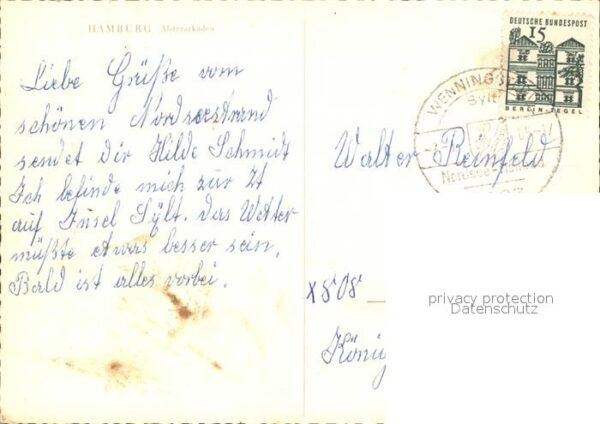 HAMBURG Alsterarkaden
Liebe Grüße vom
schönen Nordseestrand
sendet Dir Hilde Schmidt
Ich befinde mich zur Zt
auf Insel Sylt. Das Wetter
müßte etwas besser sein.
Bald ist alles vorbei.
DEUTSCHE BUNDESPOST
15
BERLIN-TEGEL
WENNINGS
Sylt
Nordsee
Walter Reinfeld
X 808
privacy protection
Datenschutz
König